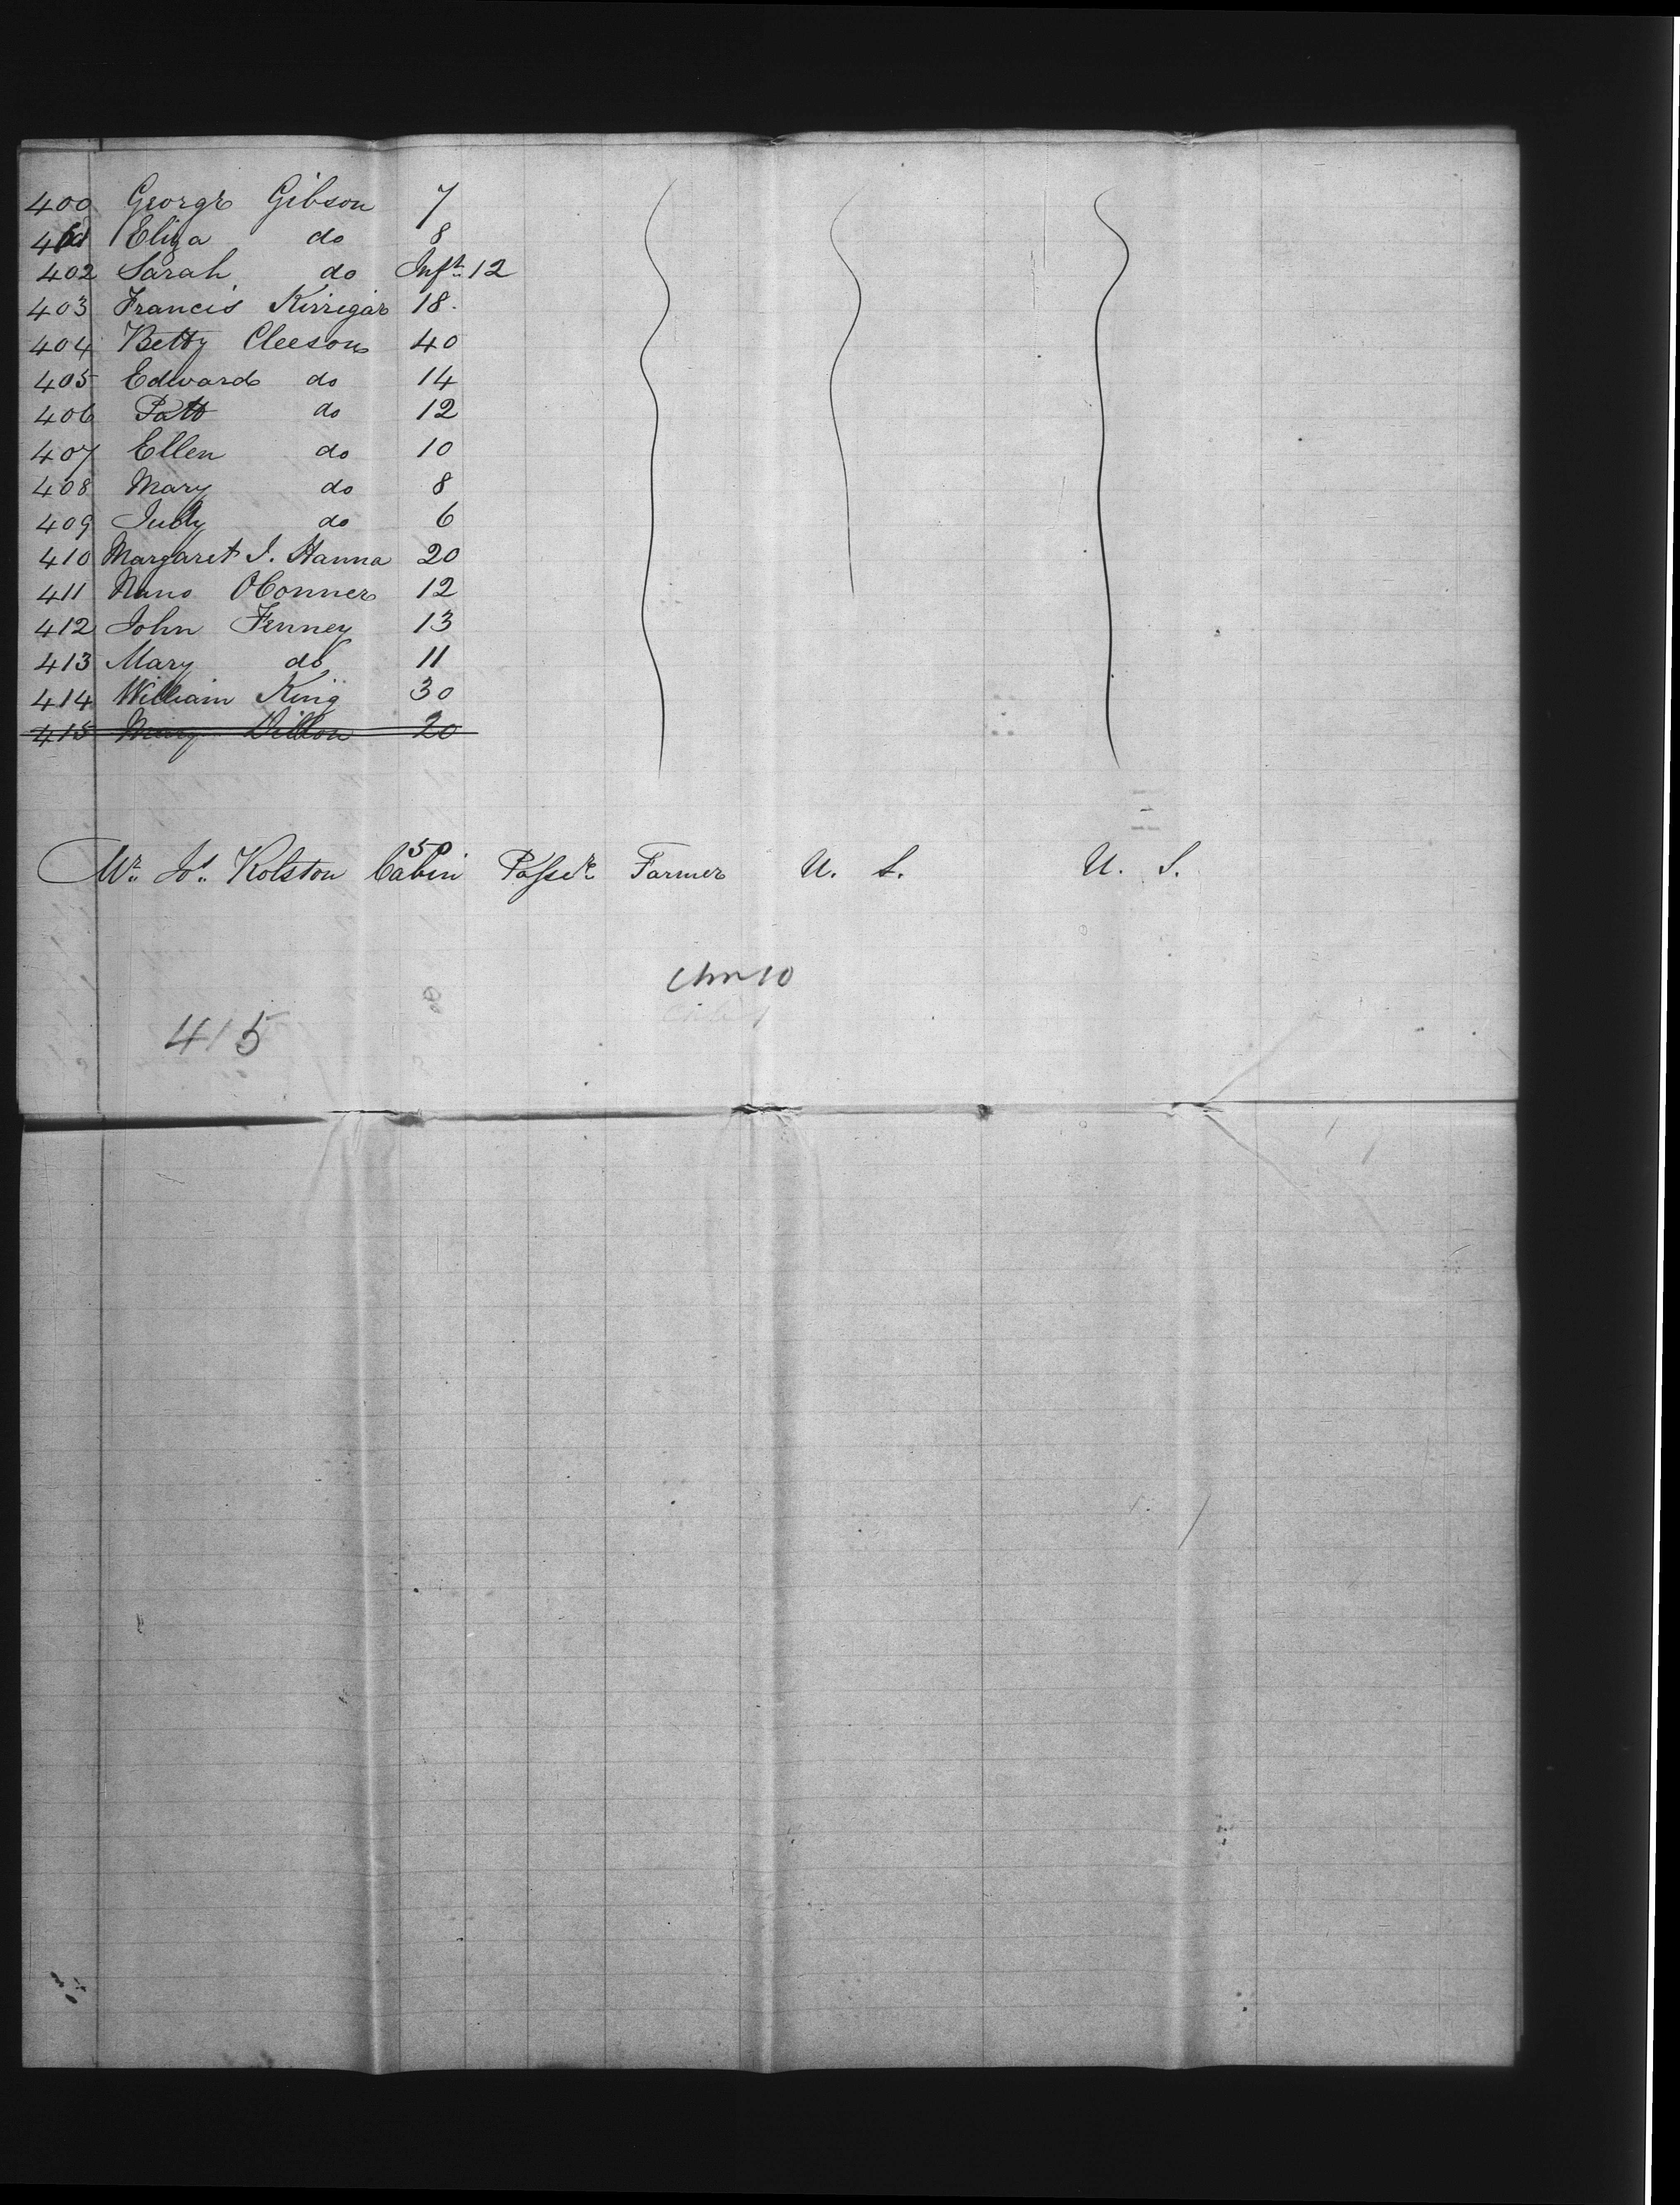 400 George Gibson 7
401 Eliza do 8
402 Sarah do Inft 12
403 Francis Kirrigar 18
404 Betty Cleeson 40
405 Edward do 14
406 Patt do 12
407 Ellen do 10
408 Mary do 8
409 Judy do 6
410 Margaret J. Hanna 20
411 Nano OConner 12
412 John Fenney 13
413 Mary do 11
414 William King 30
415 Mary Dillon 20
50
Mr. Jos. Kolston Cabin Passr. Farmer U. S. U. S.
415